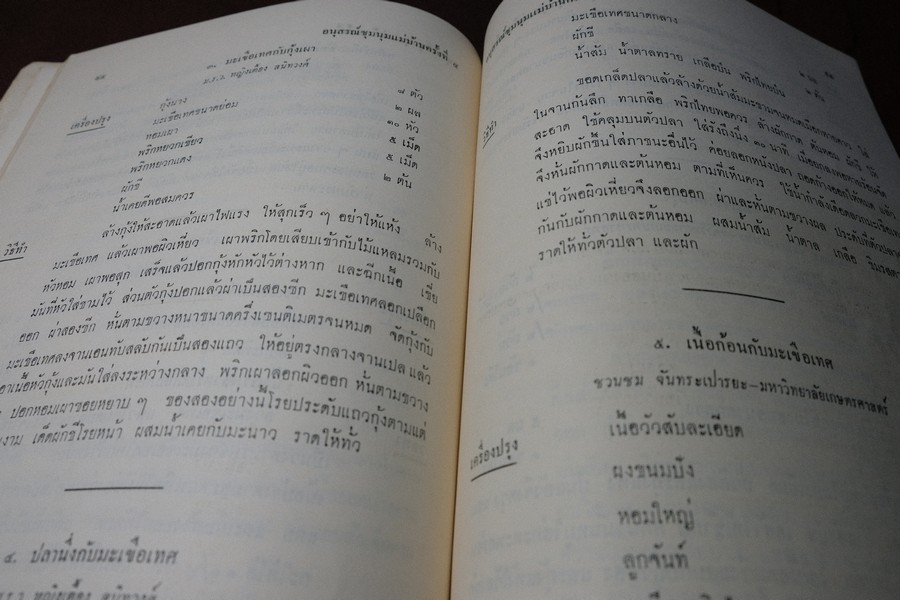 ๘๘
อนุสรณ์ชุมนุมแม่บ้านครั้งที่ ๘
๓. มะเขือเทศกับกุ้งเผา
ม.ร.ว. หญิงเตื้อง สนิทวงศ์
เครื่องปรุง
กุ้งนาง ๗ ตัว
มะเขือเทศขนาดย่อม ๒ ผล
หอมเผา ๑๐ หัว
พริกหยวกเขียว ๕ เม็ด
พริกหยวกแดง ๕ เม็ด
ผักชี ๒ ต้น
น้ำเคยดีพอสมควร
วิธีทำ ล้างกุ้งให้สะอาดแล้วเผาไฟแรง ให้สุกเร็ว ๆ อย่าให้แห้ง ล้าง
มะเขือเทศ แล้วเผาพอผิวเหี่ยว เผาพริกโดยเสียบเข้ากับไม้แหลมรวมกับ
หัวหอม เผาพอสุก เสร็จแล้วปอกกุ้งหักหัวไว้ต่างหาก และฉีกเนื้อ เขี่ย
มันที่หัวใส่ชามไว้ ส่วนตัวกุ้งปอกแล้วผ่าเป็นสองซีก มะเขือเทศลอกเปลือก
ออก ผ่าสองซีก หั่นตามขวางหนาขนาดครึ่งเซนติเมตรจนหมด จัดกุ้งกับ
มะเขือเทศลงจานเอนทับสลับกันเป็นสองแถว ให้อยู่ตรงกลางจานเปล แล้ว
เอาเนื้อหัวกุ้งและมันใส่ลงระหว่างกลาง พริกเผาลอกผิวออก หั่นตามขวาง
ปอกหอมเผาซอยหยาบ ๆ ของสองอย่างนี้โรยประดับแถวกุ้งตามแต่
งาม เด็ดผักชีโรยหน้า ผสมน้ำเคยกับมะนาว ราดให้ทั่ว
๔. ปลานึ่งกับมะเขือเทศ
ม.ร.ว. หญิงเตื้อง สนิทวงศ์
มะเขือเทศขนาดกลาง
ผักชี
น้ำส้ม น้ำตาลทราย เกลือป่น พริกไทยป่น
วิธีทำ ขอดเกล็ดปลาแล้วล้างด้วยน้ำส้มมะขามจนหมดเมือกคาว
ในจานก้นลึก ทาเกลือ พริกไทยพอควร ล้างผักกาด ต้นหอม ผักชี
สะอาด ใช้คลุมบนตัวปลา ใส่รังถึงนึ่ง ๓๐ นาที
จึงหยิบผักขึ้นใส่ภาชนะอื่นไว้ ค่อยลอกหนังปลา
จึงหั่นผักกาดและต้นหอม ตามที่เห็นควร
แช่ไว้พอผิวเหี่ยวจึงลอกออก ผ่าและหั่นตามขวางผล
กันกับผักกาดและต้นหอม ผสมน้ำส้ม น้ำตาล เกลือ
ราดให้ทั่วตัวปลา และผัก
๕. เนื้อก้อนกับมะเขือเทศ
ชวนชม จันทระเปารยะ–มหาวิทยาลัยเกษตรศาสตร์
เครื่องปรุง
เนื้อวัวสับละเอียด
ผงขนมปัง
หอมใหญ่
ลูกจันท์